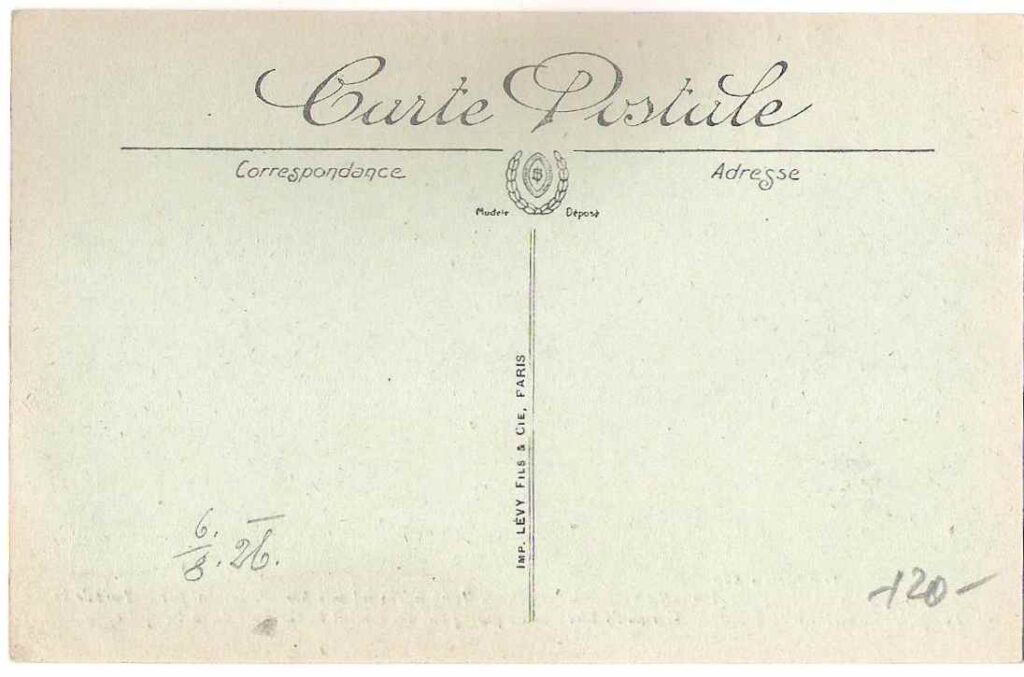 Carte Postale
Correspondance
Adresse
Modèle Déposé
IMP. LÉVY FILS & CIE, PARIS
6.
8. 26.
120-